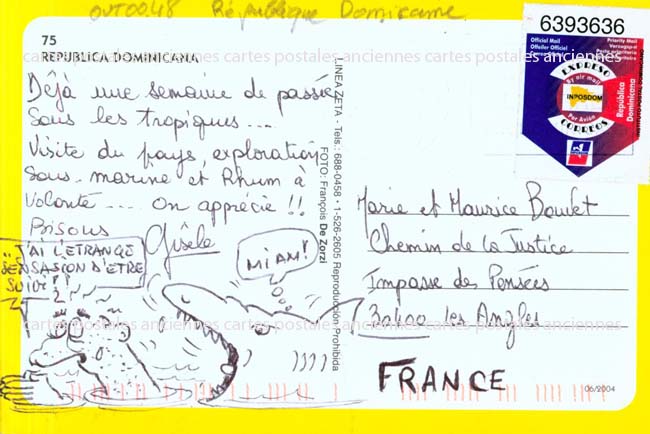 OUT0048 République Dominicaine
75
REPUBLICA DOMINICANA
Déjà une semaine de passée
Sous les tropiques...
Visite du pays, exploration
Sous-marine et Rhum à
Volonté... On apprécie !!
Bisous
Gisèle
"J'AI L'ETRANGE
SENSASION D'ETRE
SUIVI"!
MIAM!
LINEA ZETA - Tels: 688-0458 · 1-526-2605 Reproducción Prohibida
FOTO: François De Zorzi
6393636
Official Mail
Priority Mail
EXPRESO
By air mail
INPOSDOM
Par Avión
CORREOS
República
Dominicana
Marie et Maurice Bouvet
Chemin de la Justice
Impasse des Pensées
30400 les Angles
FRANCE
06/2004
cartes postales anciennes cartes postales anciennes cartes postales anciennes
cartes postales anciennes cartes postales anciennes cartes postales anciennes